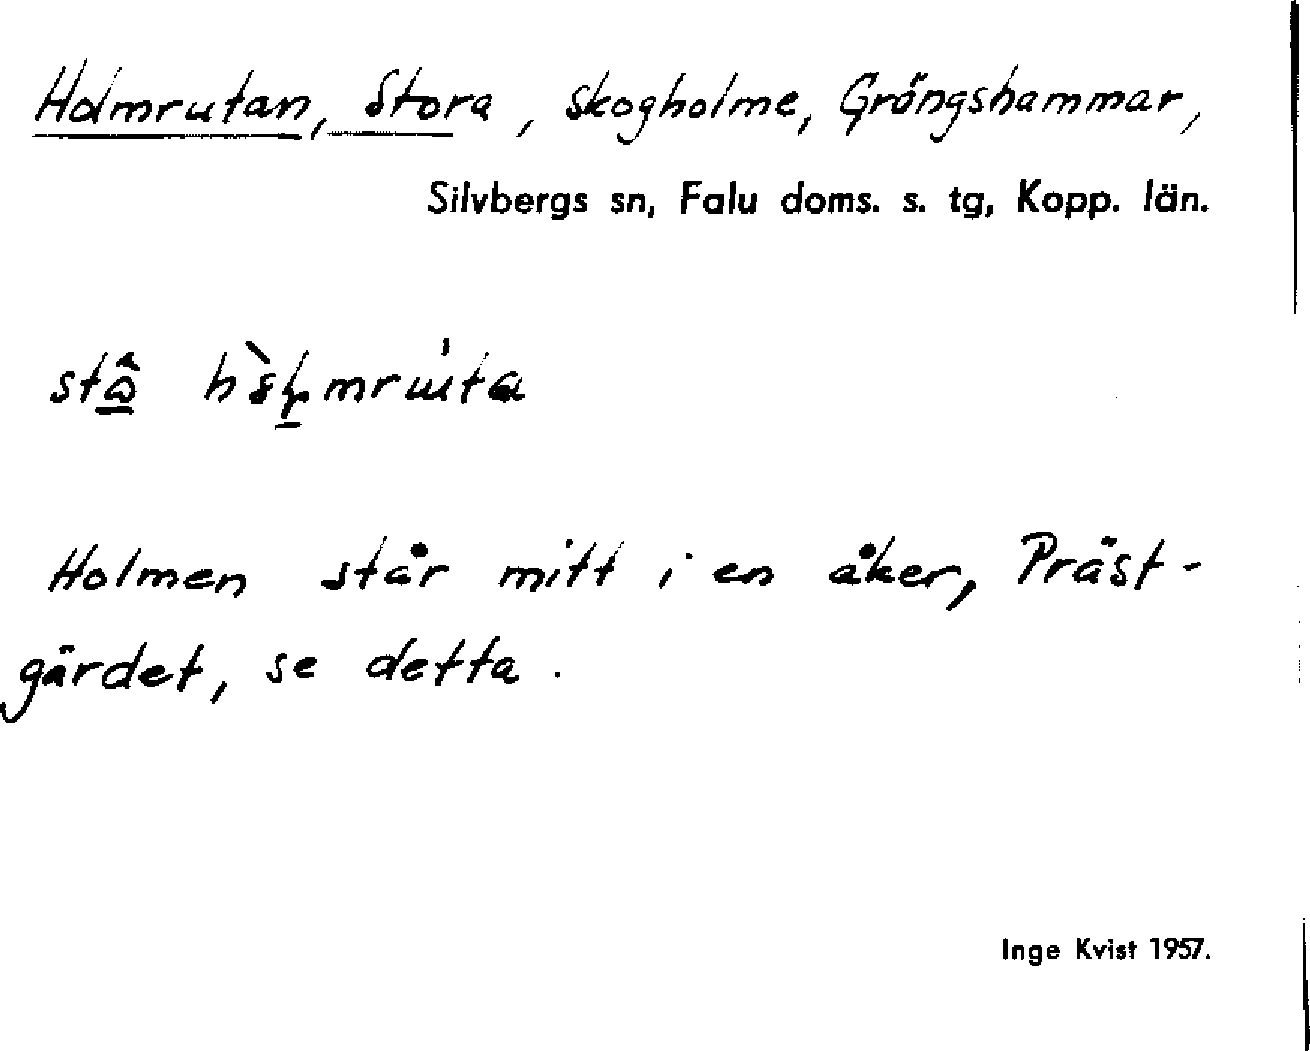 Holmrutan, Stora, skogholme, Grängshammar,
Silvbergs sn, Falu doms. s. tg, Kopp. län.
Holmen står mitt i en åker, Präst-
gärdet, se detta.
Inge Kvist 1957.